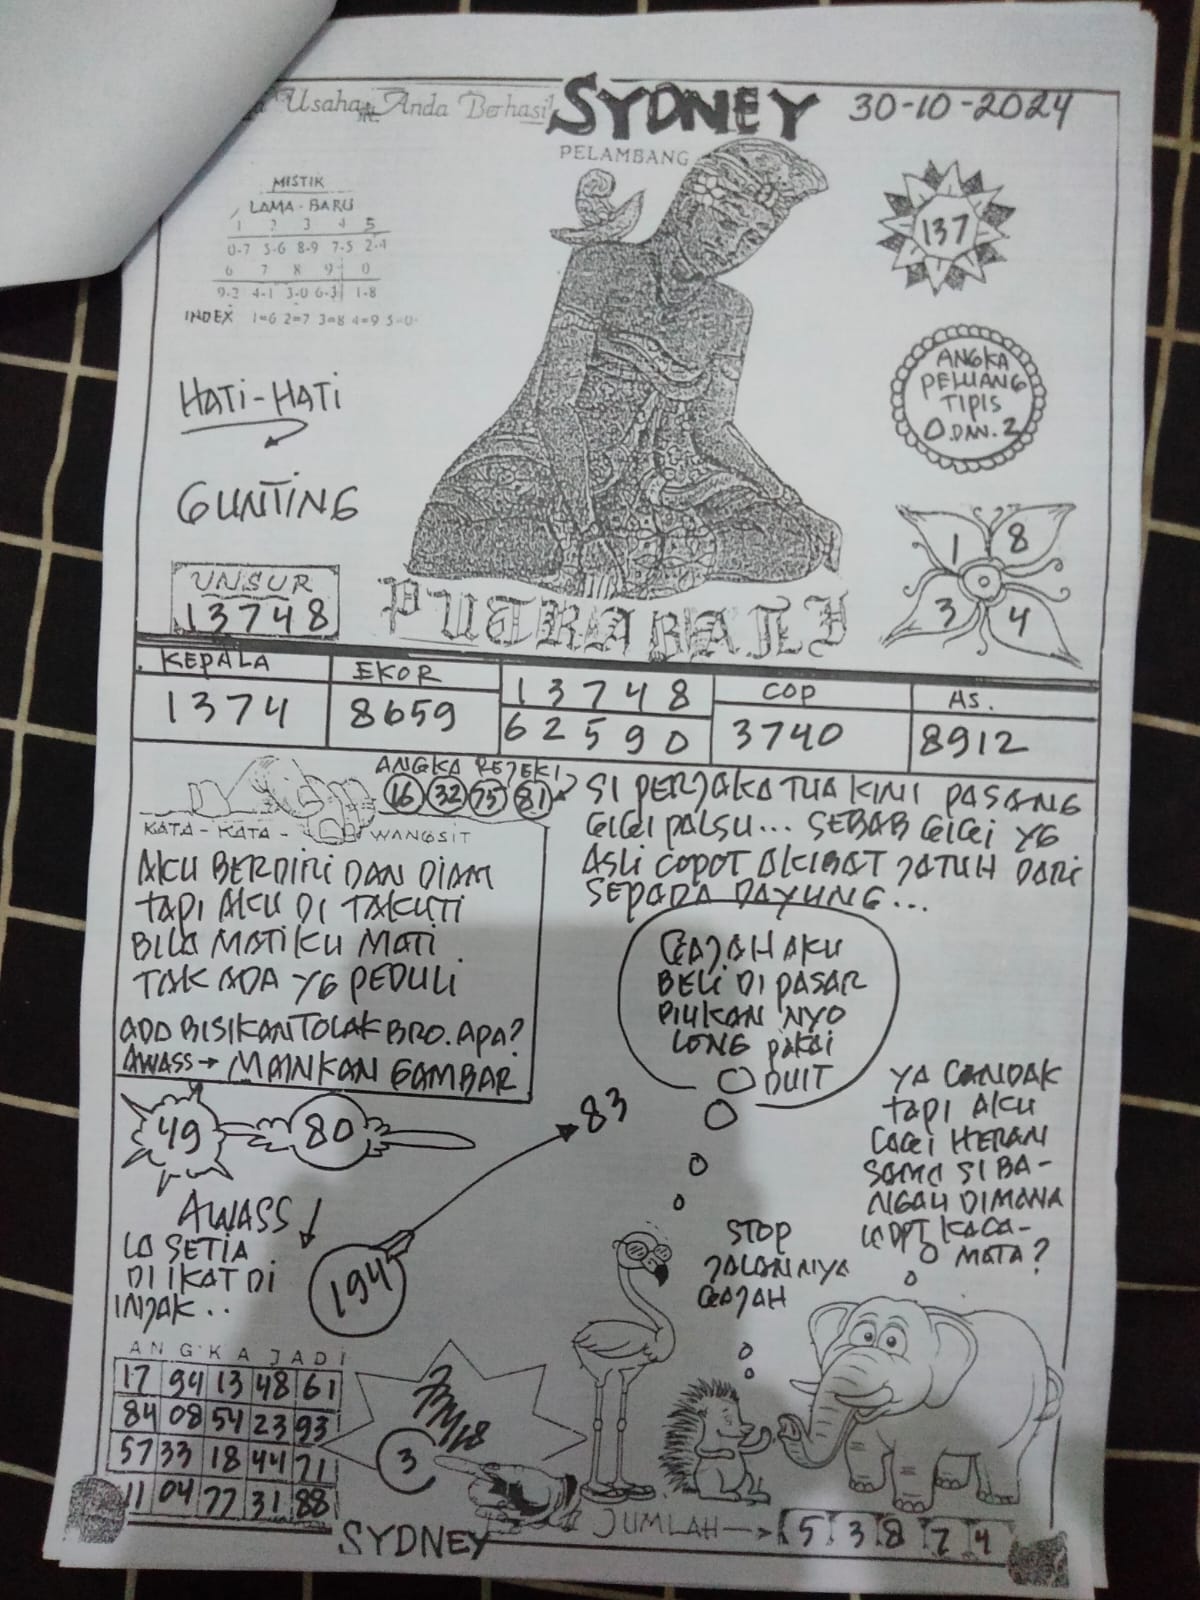 Usaha Anda Berhasil
SYDNEY
30-10-2024
PELAMBANG
MISTIK
LAMA - BARU
1 2 3 4 5
0-7 5-6 8-9 7-5 2-4
6 7 8 9 0
9-2 4-1 3-0 6-3 1-8
INDEX 1=6 2=7 3=8 4=9 5=0
137
HATI-HATI
GUNTING
ANGKA
PELUANG
TIPIS
0 DAN 2
1 8
3 4
UNSUR
13748
PUTRA BALI
KEPALA
1374
EKOR
8659
13748
62590
COP
3740
AS.
8912
ANGKA REJEKI
16 32 75 81
KATA - KATA - WANGSIT
AKU BERDIRI DAN DIAM
TAPI AKU DI TAKUTI
BILA MATIKU MATI
TAK ADA YG PEDULI
ADA BISIKAN TOLAK BRO. APA?
AWASS → MAINKAN GAMBAR
SI PERJAKA TUA KINI PASANG
GIGI PALSU... SEBAB GIGI YG
ASLI COPOT AKIBAT JATUH DARI
SEPADA DAYUNG...
GAJAH AKU
BELI DI PASAR
PIUKAN NYO
LONG PAKAI
DUIT
YA CANDAK
TAPI AKU
LAGI HERAN
SAMA SI BA-
NGAU DIMANA
LA DPT KACA-
MATA?
49 80
83
AWASS
LA SETIA
DI IKAT DI
INJAK..
194
STOP
JALANNYA
GAJAH
ANGKA JADI
17 94 13 48 61
84 08 54 23 93
57 33 18 44 71
11 04 77 31 88
3
SYDNEY
JUMLAH → 5 3 8 7 4